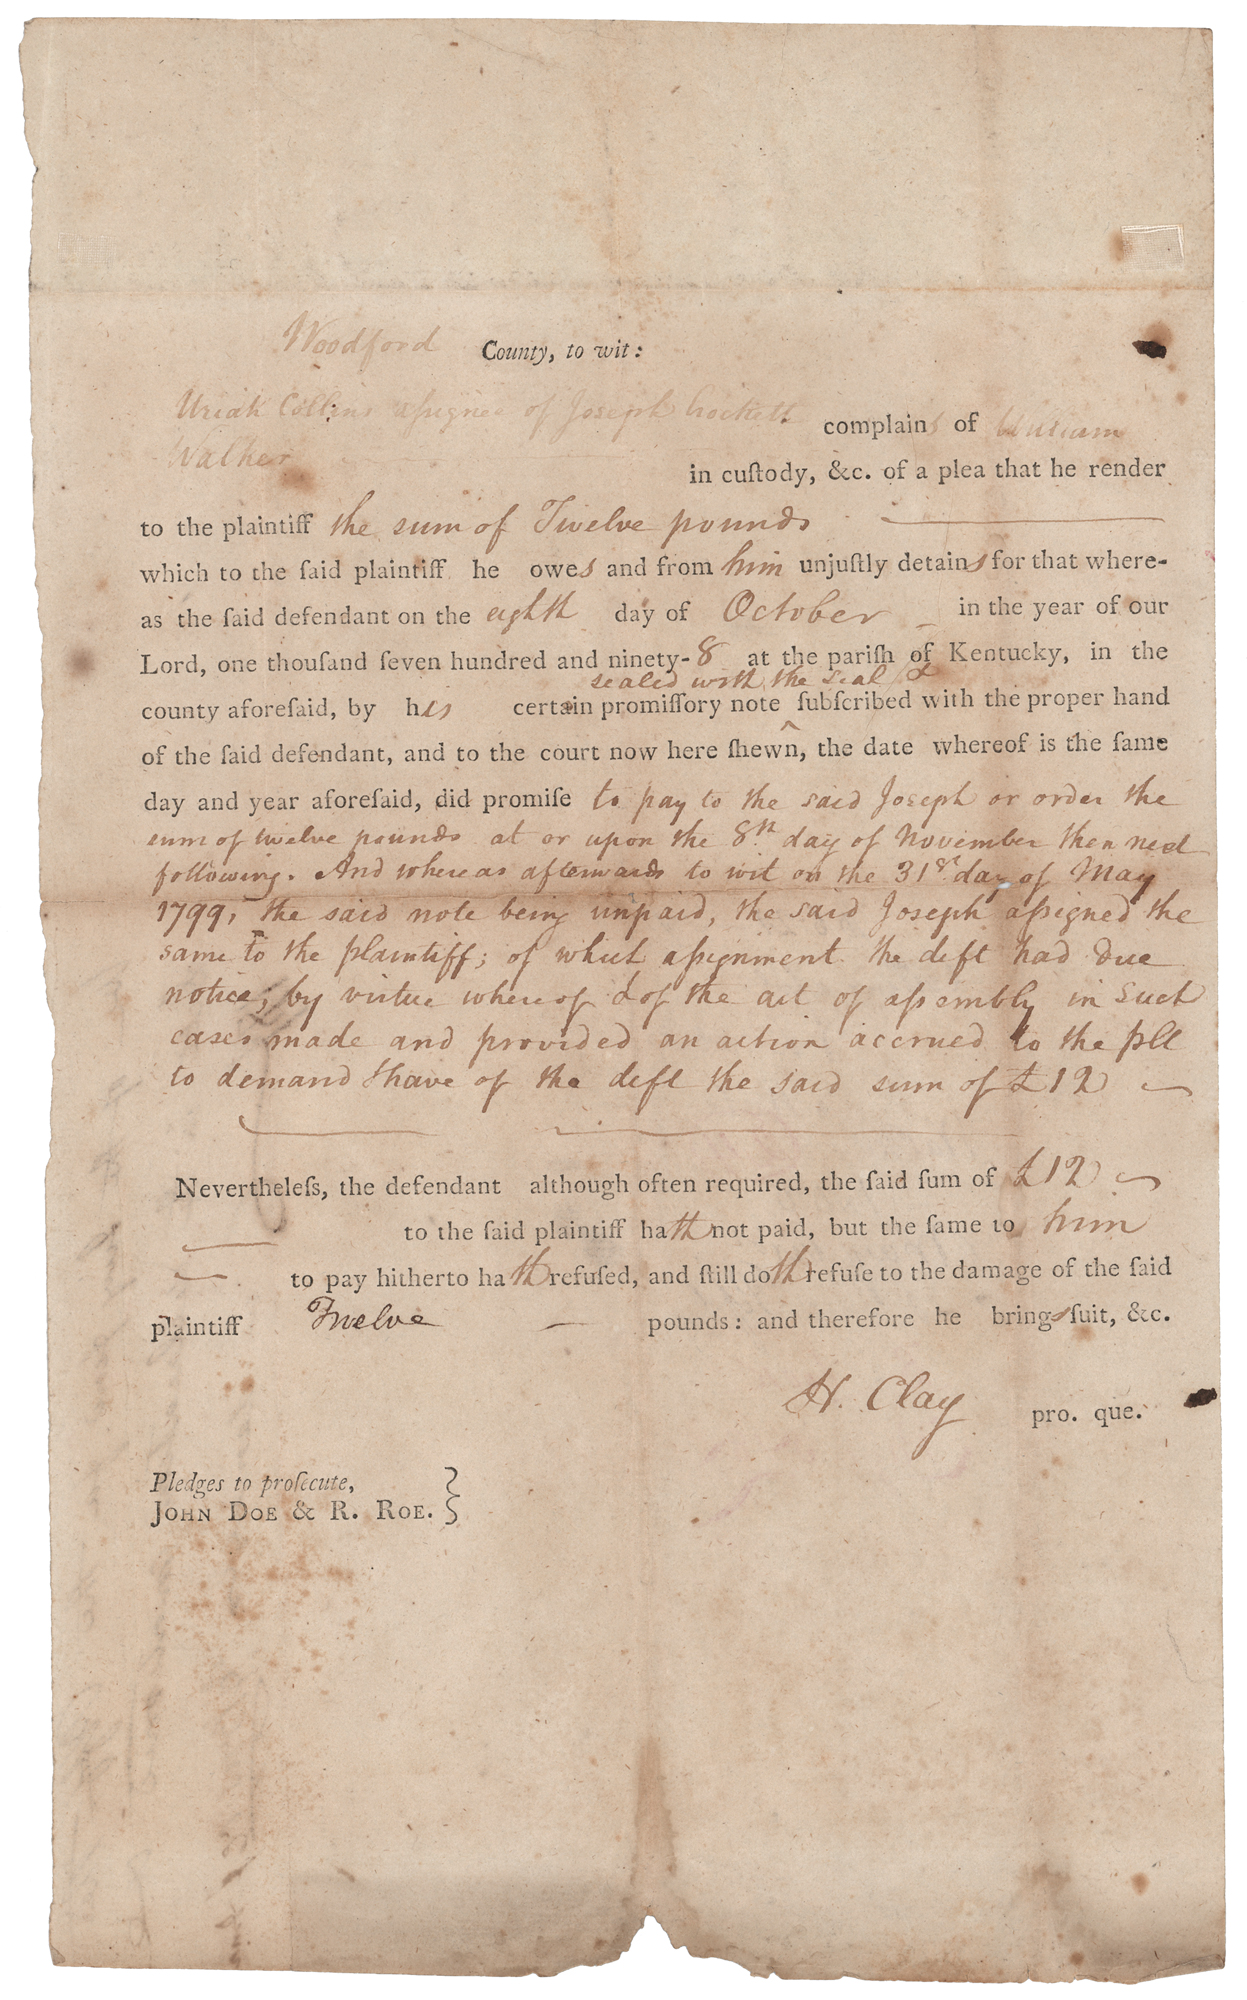 Woodford County, to wit:
Uriah Collins aſsignee of Joseph Crockett complains of William
Walker
in cuſtody, &c. of a plea that he render
to the plaintiff the sum of Twelve pounds
which to the ſaid plaintiff he owes and from him unjuſtly detains for that where-
as the ſaid defendant on the eighth day of October in the year of our
Lord, one thouſand ſeven hundred and ninety-8 at the pariſh of Kentucky, in the
sealed with the seal &
county aforeſaid, by his certain promiſſory note ‸ ſubſcribed with the proper hand
of the ſaid defendant, and to the court now here ſhewn, the date whereof is the ſame
day and year aforeſaid, did promiſe to pay to the said Joseph or order the
sum of twelve pounds at or upon the 8th day of November then next
following. And whereas afterwards to wit on the 31st day of May
1799, the said note being unpaid, the said Joseph aſsigned the
same to the plaintiff; of which aſsignment the deft had due
notice; by virtue whereof & of the act of aſsembly in such
cases made and provided an action accrued to the plt
to demand & have of the deft the said sum of £12
Nevertheleſs, the defendant although often required, the ſaid ſum of £12
to the ſaid plaintiff hath not paid, but the ſame to him
to pay hitherto hath refuſed, and ſtill doth refuſe to the damage of the ſaid
plaintiff Twelve pounds: and therefore he brings ſuit, &c.
H. Clay pro. que.
Pledges to proſecute,
JOHN DOE & R. ROE. }